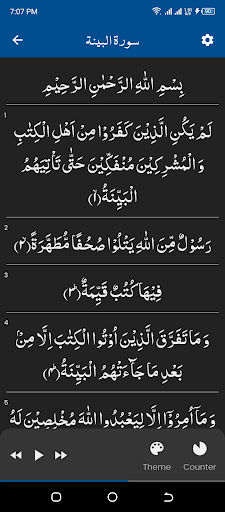 7:07 PM
سورة البينة
بِسْمِ اللهِ الرَّحْمٰنِ الرَّحِيْمِ
1
لَمْ يَكُنِ الَّذِيْنَ كَفَرُوْا مِنْ اَهْلِ الْكِتٰبِ
وَالْمُشْرِكِيْنَ مُنْفَكِّيْنَ حَتّٰى تَاْتِيَهُمُ
الْبَيِّنَةُ ﴿۱﴾
2
رَسُوْلٌ مِّنَ اللهِ يَتْلُوْا صُحُفًا مُّطَهَّرَةً ﴿۲﴾
3
فِيْهَا كُتُبٌ قَيِّمَةٌ ﴿۳﴾
4
وَمَا تَفَرَّقَ الَّذِيْنَ اُوْتُوا الْكِتٰبَ اِلَّا مِنْۢ
بَعْدِ مَا جَآءَتْهُمُ الْبَيِّنَةُ ﴿۴﴾
5
وَمَاۤ اُمِرُوْۤا اِلَّا لِيَعْبُدُوا اللهَ مُخْلِصِيْنَ لَهُ
Theme
Counter